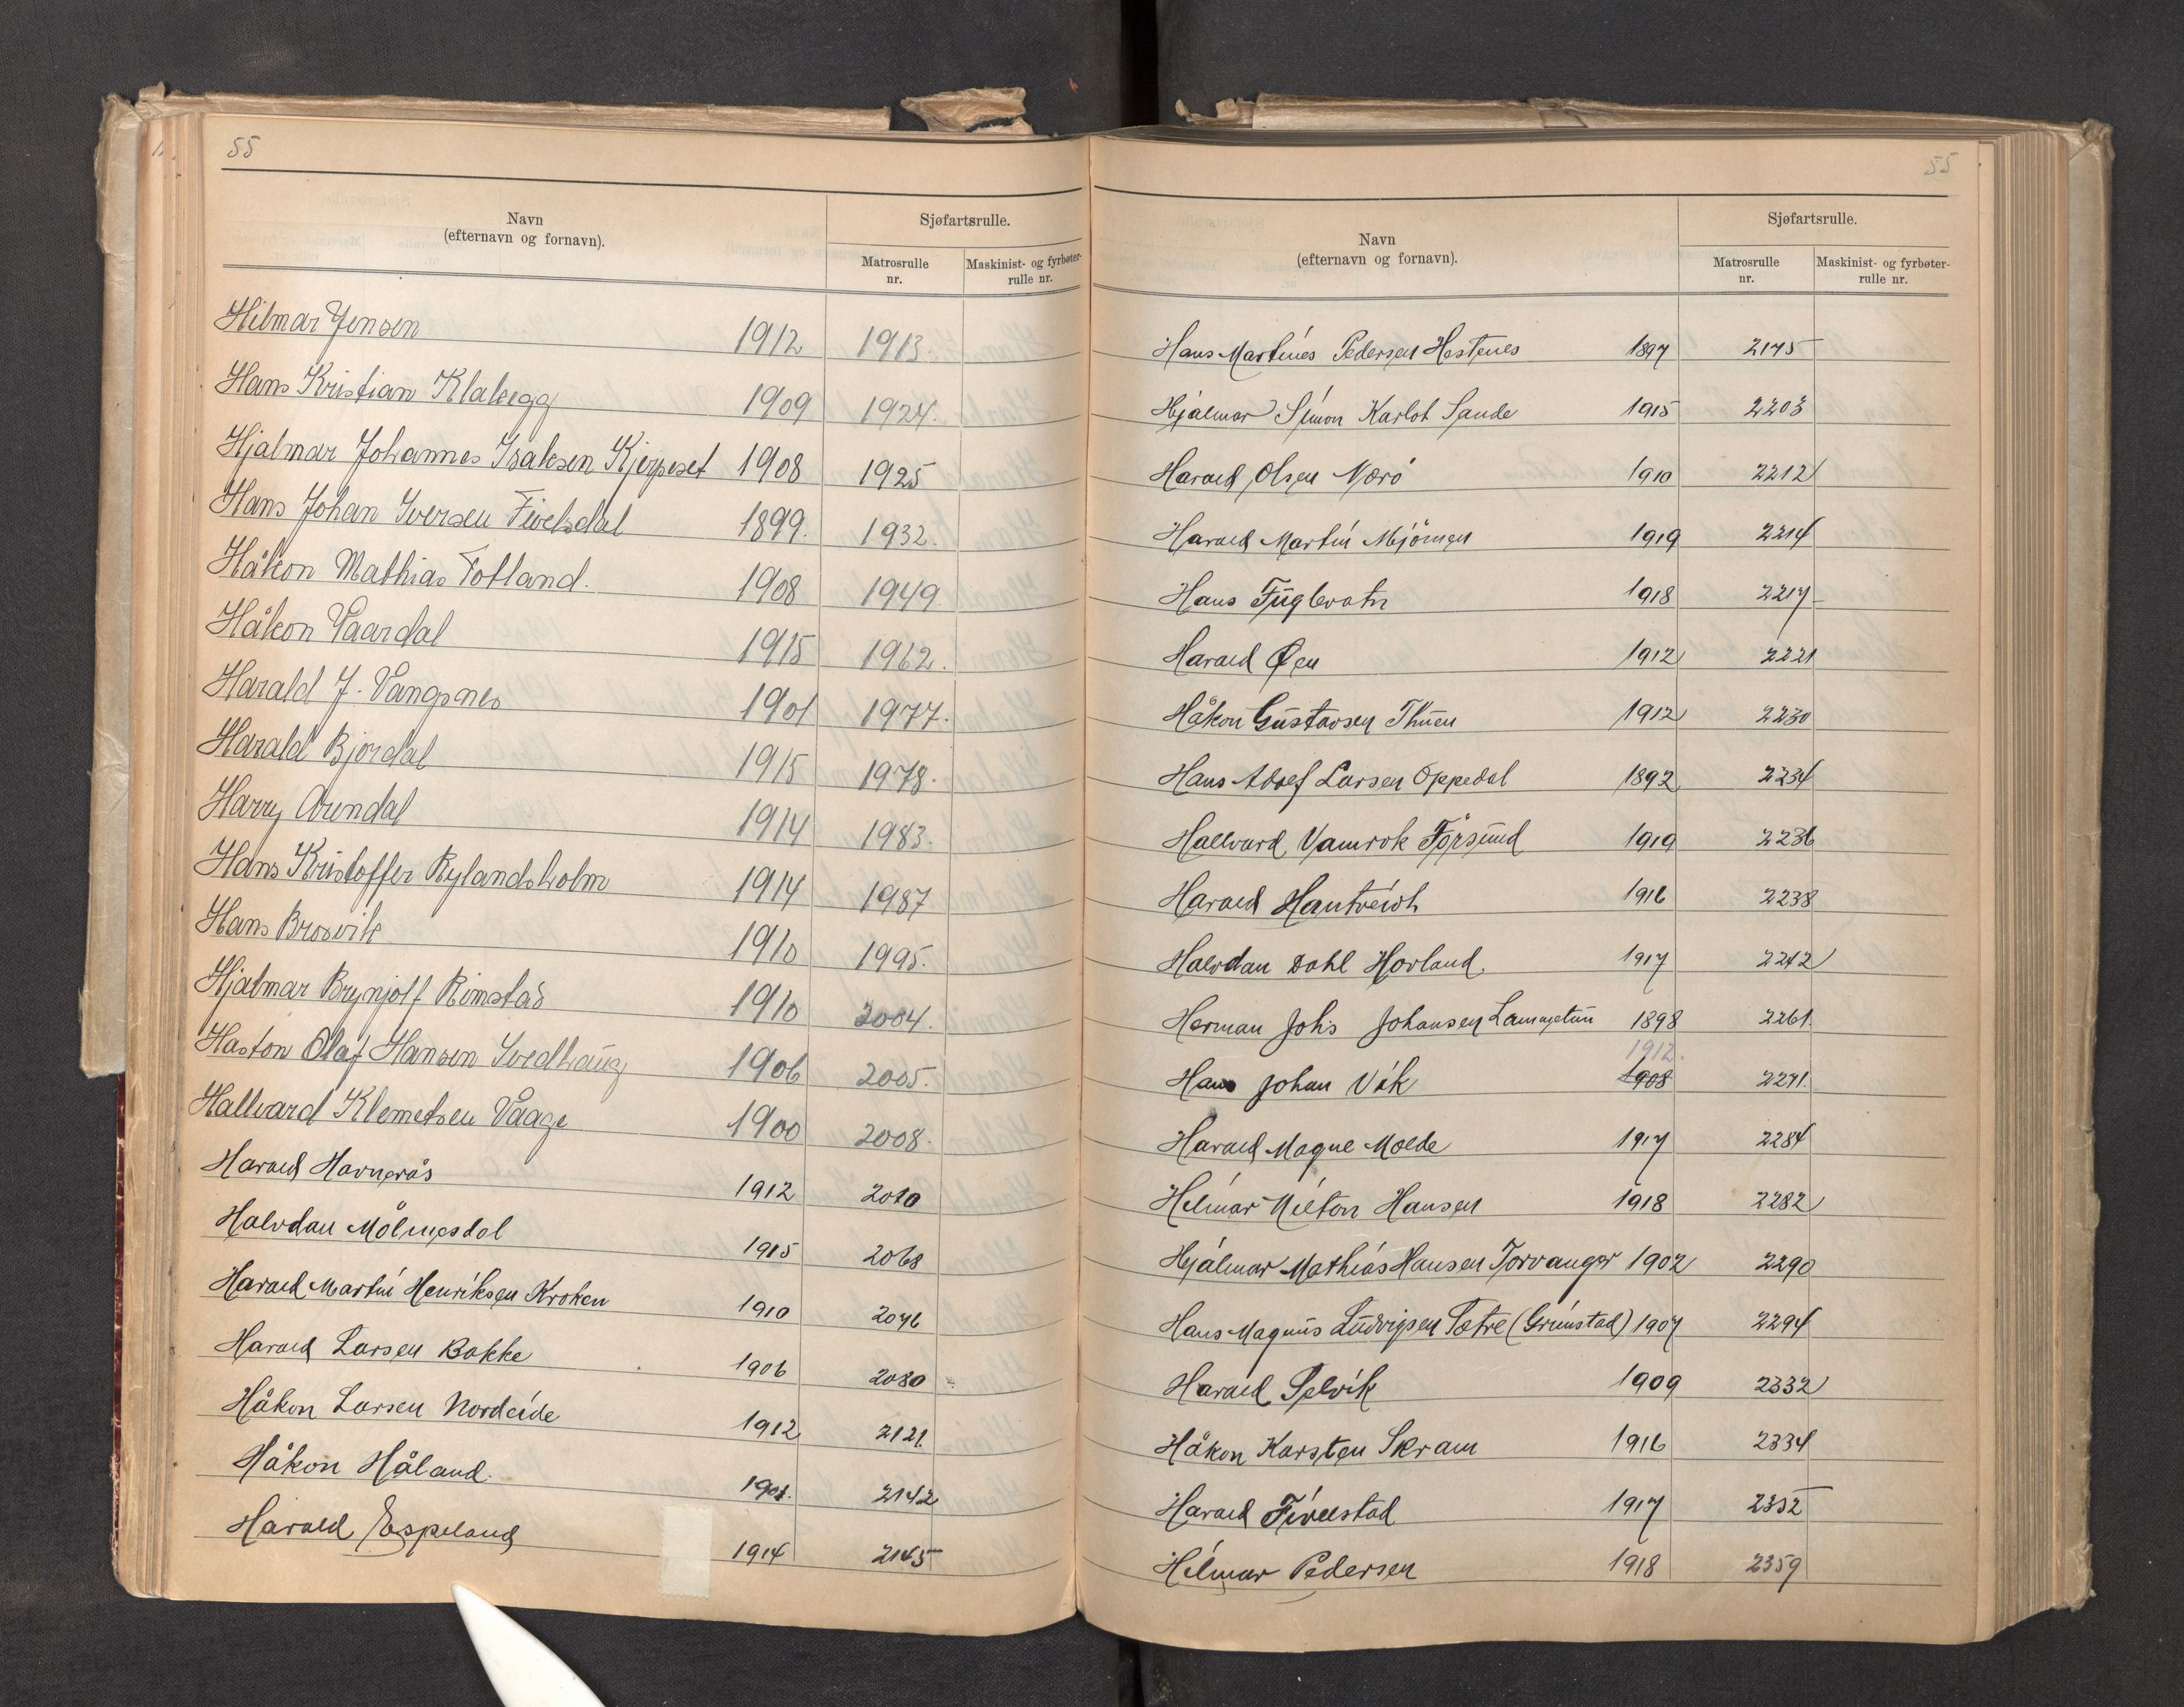 55
Navn
(efternavn og fornavn).
Sjøfartsrulle.
Matrosrulle nr.
Maskinist- og fyrbøter-rulle nr.
Hilmar Jensen 1912 1913.
Hans Kristian Klakegg 1909 1924.
Hjalmar Johannes Isaksen Kjerpeset 1908 1925
Hans Johan Iversen Fivelsdal 1899. 1932.
Håkon Mathias Totland. 1908 1949.
Håkon Vaardal 1915 1962.
Harald J. Vangsnes 1901 1977.
Harald Bjordal 1915 1978.
Harry Arendal 1914 1983.
Hans Kristoffer Rylandsholm 1914 1987
Hans Brosvik 1910 1995.
Hjalmar Brynjolf Rimstad 1910 2004.
Haston Olaf Hansen Svedhaug 1906 2005.
Hallvard Klemetsen Vaage 1900 2008.
Harald Havnerås 1912 2010
Halvdan Mölmesdal 1915 2068
Harald Martin Henriksen Kroken 1910 2076
Harald Larsen Bakke 1906 2080
Håkon Larsen Nordeide 1912 2121
Håkon Håland. 1901. 2142
Harald Espeland 1914 2145
55
Navn
(efternavn og fornavn).
Sjøfartsrulle.
Matrosrulle nr.
Maskinist- og fyrbøter-rulle nr.
Hans Martines Pedersen Hestenes 1897 2175
Hjalmar Simon Karlot Sande 1915 2203
Harald Olsen Nærö 1910 2212
Harald Martin Mjömen 1919 2214
Hans Fuglevatn 1918 2217
Harald Øen 1912 2221
Håkon Gustavsen Thuen 1912 2230
Hans Adolf Larsen Oppedal 1892 2234
Hallvard Vamrok Försund 1919 2236
Harald Hantveidt 1916 2238
Halvdan Dahl Hovland. 1917 2242
Herman Johs Johansen Lammetun 1898 2261.
1912.
Hans Johan Vik 1908 2271.
Harald Magne Molde 1917 2284
Hilmar Milton Hansen 1918 2282
Hjalmar Mathias Hansen Torvanger 1902 2290
Hans Magnus Ludvigsen Sætre (Grimstad) 1907 2294
Harald Selvik 1909 2332
Håkon Karsten Skram 1916 2334
Harald Fivelstad 1917 2352
Hilmar Pedersen 1918 2359